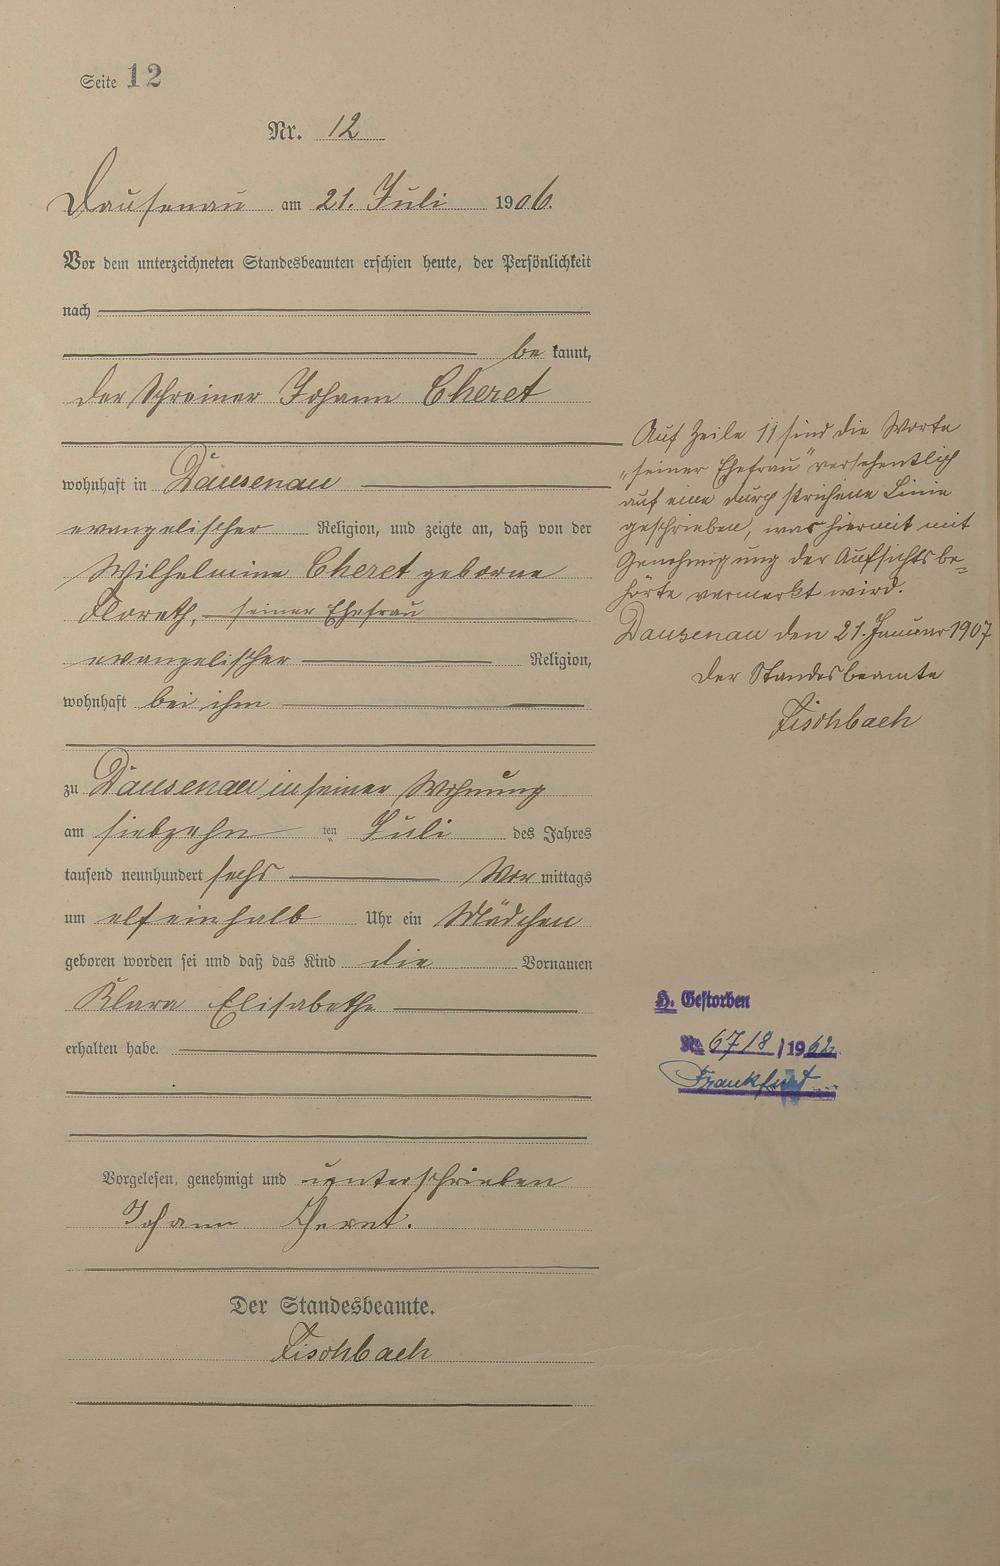 Seite 12
Nr. 12
Dausenau am 21. Juli 1906.
Vor dem unterzeichneten Standesbeamten erschien heute, der Persönlichkeit
nach
be kannt,
der Schreiner Johann Cheret
wohnhaft in Dausenau
evangelischer Religion, und zeigte an, daß von der
Wilhelmine Cheret geborne
Floreth, seiner Ehefrau
evangelischer Religion,
wohnhaft bei ihm
zu Dausenau in seiner Wohnung
am siebzehn ten Juli des Jahres
tausend neunhundert sechs Vor mittags
um elf einhalb Uhr ein Mädchen
geboren worden sei und daß das Kind die Vornamen
Klara Elisabethe
erhalten habe.
Vorgelesen, genehmigt und unterschrieben
Johann Cheret.
Der Standesbeamte.
Fischbach
Auf Zeile 11 sind die Worte
"seiner Ehefrau" versehentlich
auf eine durchstrichene Linie
geschrieben, was hiermit mit
Genehmigung der Aufsichtsbe=
hörte vermerkt wird.
Dausenau den 21. Januar 1907
Der Standesbeamte
Fischbach
H. Gestorben
No 6718/1962.
Frankfurt